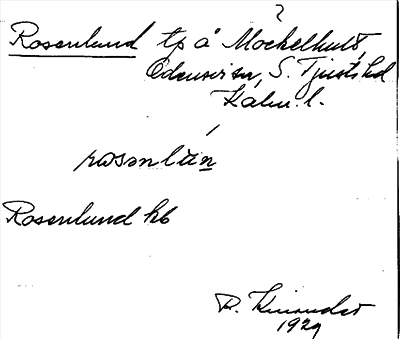 ?
Rosenlund tp å Mockelhult,
Odensvi sn, S. Tjusts hd
Kalm. l.
rosənlu̇n
Rosenlund hb
R.
1929